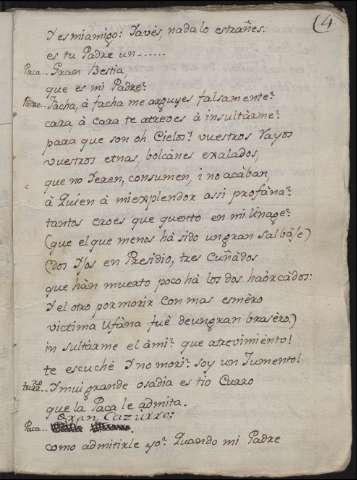 (4
Y es mi amigo: Ya vés, nada lo estrañes.
es tu Padre un......
Paca.. Gran Bestia
que es mi Padre?
Padre.. Pacha, à facha me arguyes falsamente?
cara à cara te atreves à insultarme?
para que son oh Cielos! vuestros Rayos
vuestros etnas, bolcànes exalados,
que no yeren, consumen, i no acaban,
à Quien à mi explendor assi profàna?
tantos eroes que quento en mi linage?
(que el que menos hà sido un gran Salbàje)
(dos Yjos en Presidio, tres Cuñàdos
que hàn muerto poco hà los dos haòrcàdos:
Y el otro por morir con mas esmèro
victima Ufàna fuè de un gran brasèro.)
insultarme él à mi? que atrevimiento!
te escuchè Y no morì? soy un Jumento!
Y mui grande osadìa es tio Curro
que la Paca le admita.
Gran Cazurro:
Paca..
como admitirle yo? Quando mi Padre